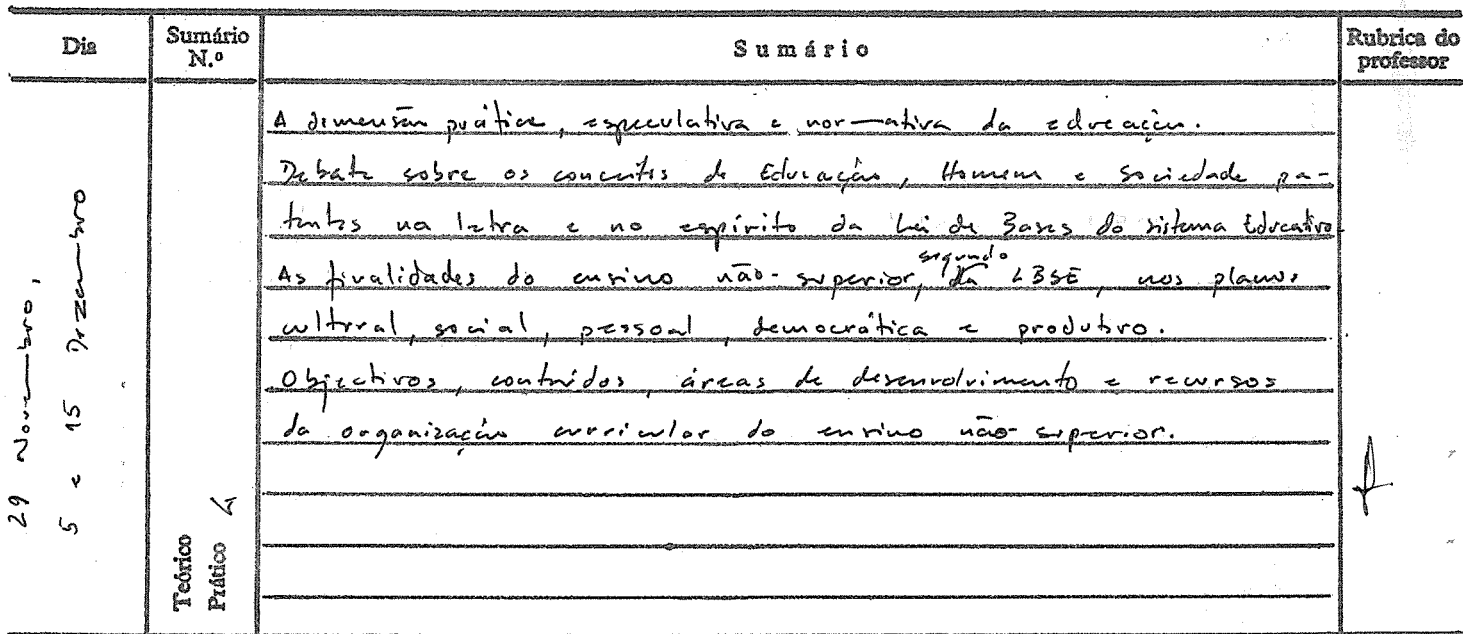 Dia
Sumário N.º
Sumário
Rubrica do professor
29 Novembro,
5 e 15 Dezembro
Teórico
Prático
A dimensão prática, especulativa e normativa da educação.
Debate sobre os conceitos de Educação, Homem e sociedade pa-
tentes na letra e no espírito da Lei de Bases do sistema Educativo
As finalidades do ensino não-superior, segundo da LBSE, nos planos
cultural, social, pessoal, democrática e produtivo.
Objectivos, conteúdos, áreas de desenvolvimento e recursos
da organização curricular do ensino não-superior.